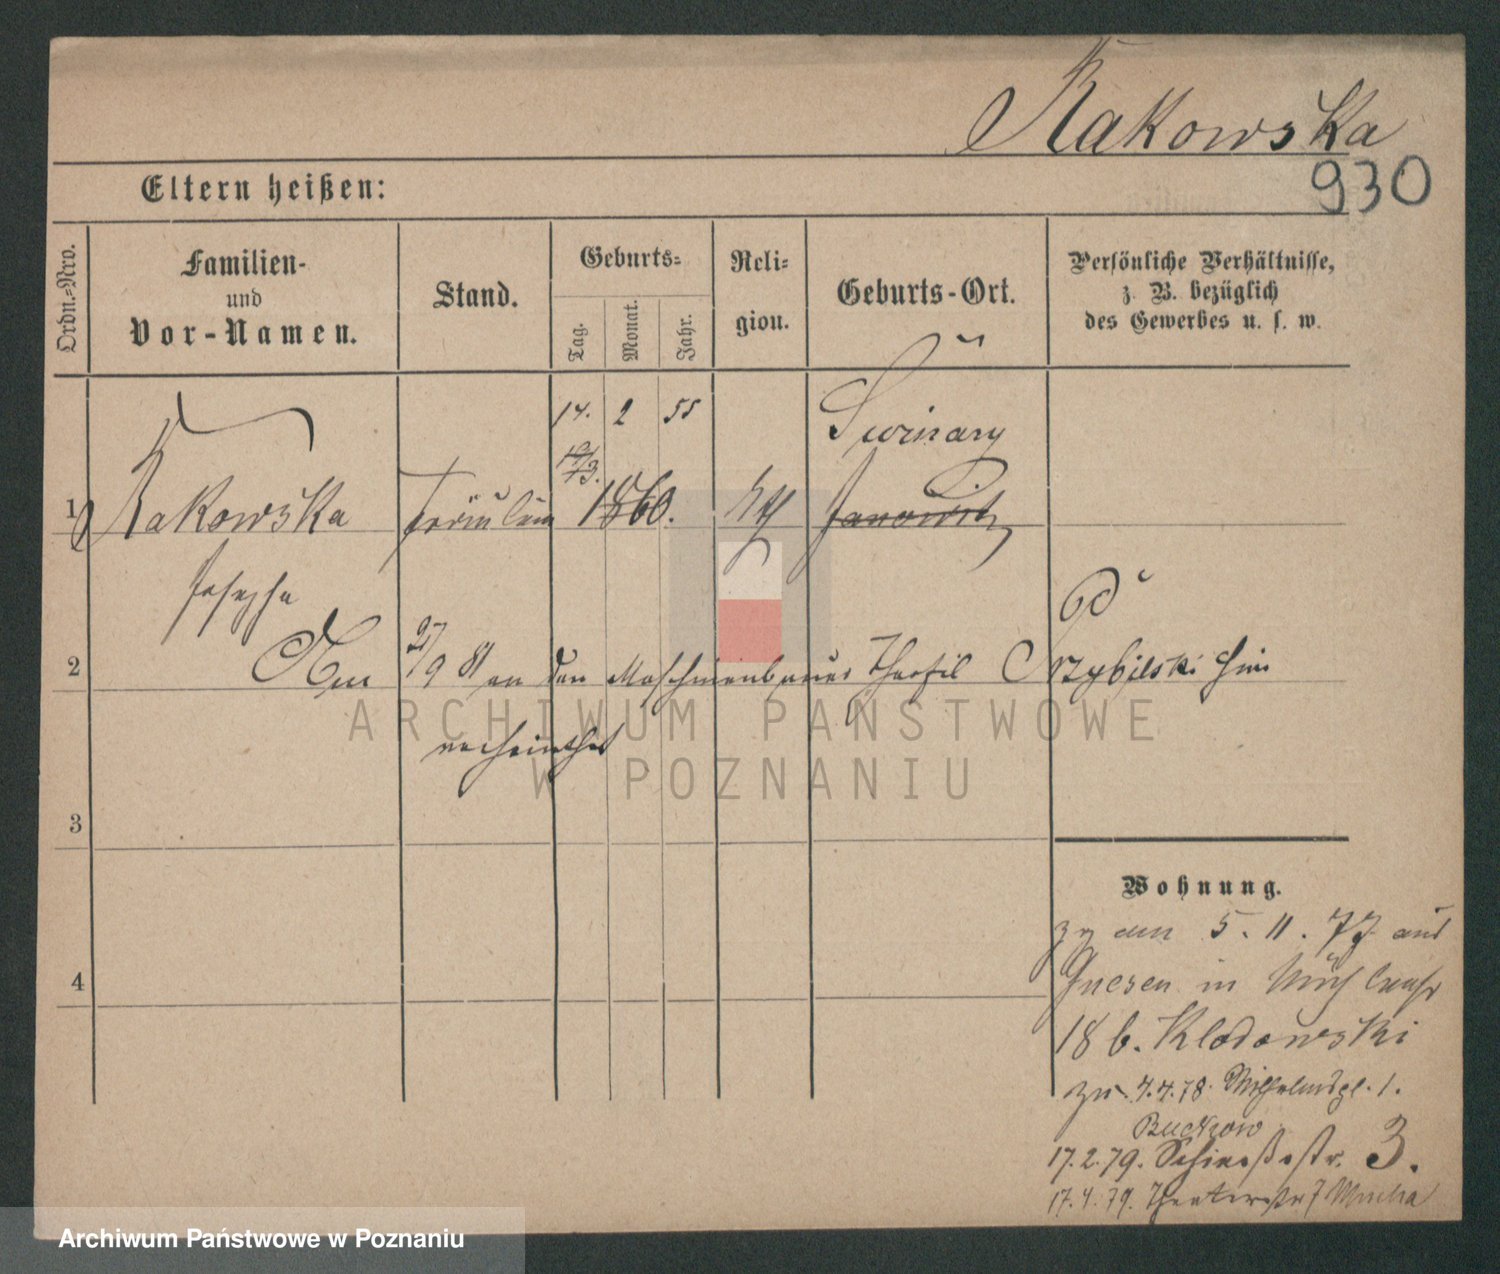 Rakowska
930
Eltern heißen:
Ordn.-Nro.
Familien-
und
Vor-Namen.
Stand.
Geburts-
Tag.
Monat.
Jahr.
Reli-
gion.
Geburts-Ort.
Persönliche Verhältnisse,
z. B. bezüglich
des Gewerbes u. s. w.
14. 2 55
Swiniary
1 Rakowska Fräulein 1860. Janowitz
Josepha
2 Am 27/9 81 an den Maschinenbauer Theofil Grzybilski hier
verheirathet
3
4
Wohnung.
zg am 5. 11. 77 aus
Gnesen in
18 b. Klodowski
zu 4.4.78. Wilhelmspl. 1.
Buckzow
17.2.79. Schießstr. 3.
17.4.79. Theaterstr 7 Mucha
ARCHIWUM PAŃSTWOWE
W POZNANIU
Archiwum Państwowe w Poznaniu